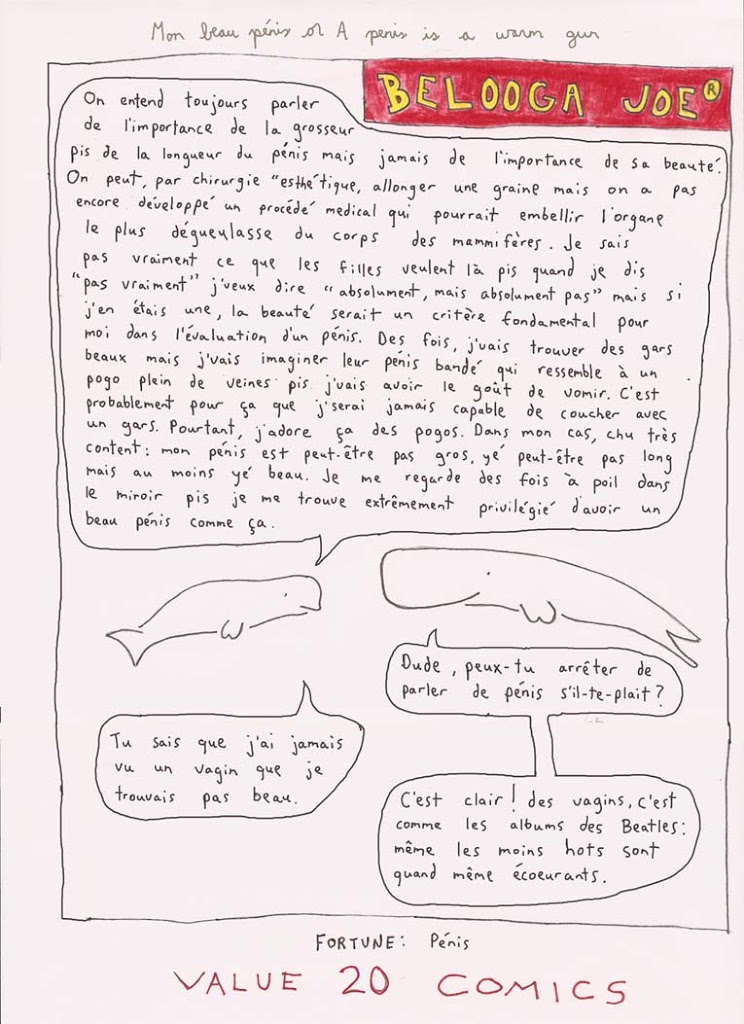 Mon beau pénis or A penis is a warm gun
BELOOGA JOE®
On entend toujours parler
de l'importance de la grosseur
pis de la longueur du pénis mais jamais de l'importance de sa beauté.
On peut, par chirurgie "esthétique, allonger une graine mais on a pas
encore développé un procédé medical qui pourrait embellir l'organe
le plus dégueulasse du corps des mammifères. Je sais
pas vraiment ce que les filles veulent là pis quand je dis
"pas vraiment" j'veux dire "absolument, mais absolument pas" mais si
j'en étais une, la beauté serait un critère fondamental pour
moi dans l'évaluation d'un pénis. Des fois, j'vais trouver des gars
beaux mais j'vais imaginer leur pénis bandé qui ressemble à un
pogo plein de veines pis j'vais avoir le goût de vomir. C'est
probablement pour ça que j'serai jamais capable de coucher avec
un gars. Pourtant, j'adore ça des pogos. Dans mon cas, chu très
content: mon pénis est peut-être pas gros, yé peut-être pas long
mais au moins yé beau. Je me regarde des fois à poil dans
le miroir pis je me trouve extrêmement privilégié d'avoir un
beau pénis comme ça.
Dude, peux-tu arrêter de
parler de pénis s'il-te-plait?
Tu sais que j'ai jamais
vu un vagin que je
trouvais pas beau.
C'est clair! des vagins, c'est
comme les albums des Beatles:
même les moins hots sont
quand même écoeurants.
FORTUNE: Pénis
VALUE 20 COMICS